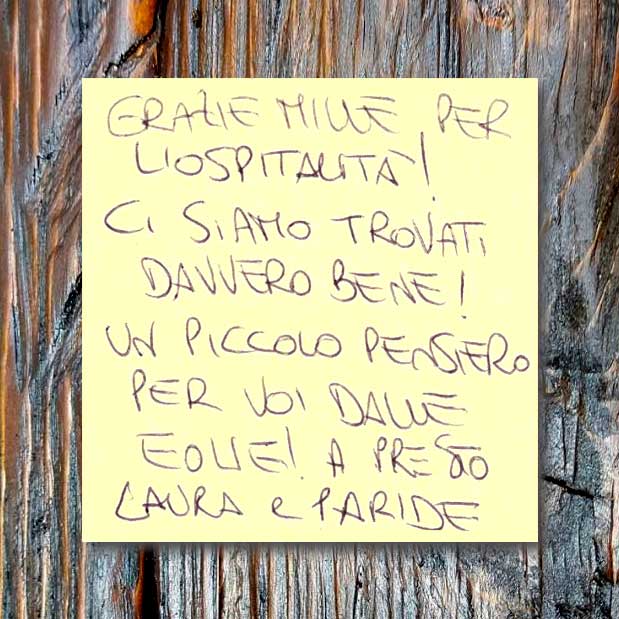 GRAZIE MILLE PER
L'OSPITALITÀ!
CI SIAMO TROVATI
DAVVERO BENE!
UN PICCOLO PENSIERO
PER VOI DALLE
EOLIE! A PRESTO
LAURA e PARIDE